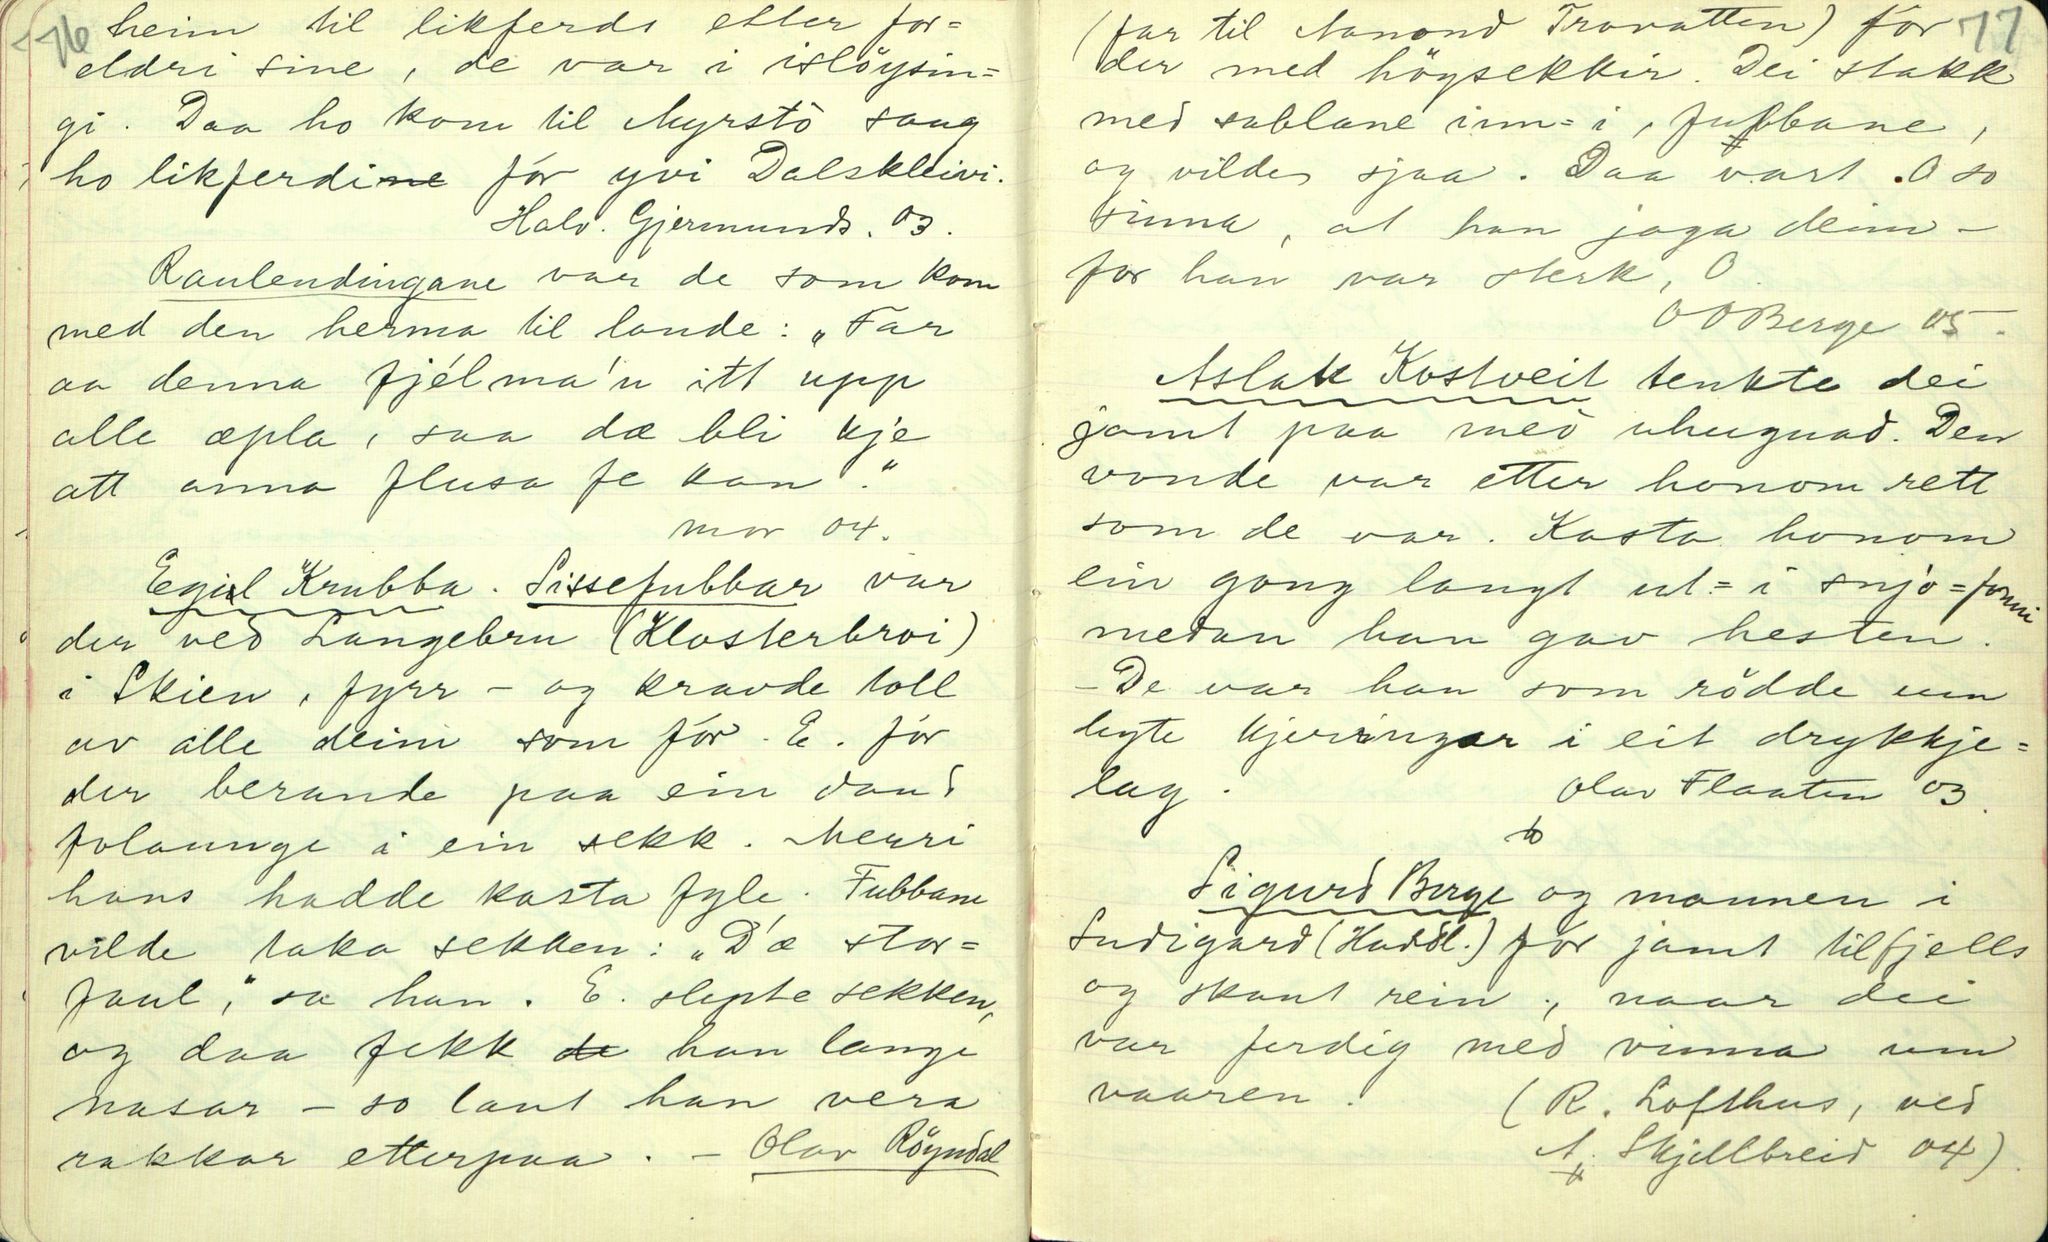 76
heim til likferdi etter for=
eldri sine, de var i islöysin=
gi. Daa ho kom til Myrstò saag
ho likferdine fór yvi Dalskleivi.
Halv. Gjermunds. 03.
Raulendingane var de som kom
med den herma til lande: „Far
aa denna fjél ma'n itt upp
alle æpla, saa dæ bli kje
att anna flusa fe kan."
mor 04.
Egil Krubba. Sissefubbar var
der ved Langebru (Klosterbroi)
i Skien, fyrr – og kravde toll
av alle deim som fór. E. fór
der berande paa ein daud
folaunge i ein sekk. Merri
hans hadde kasta fyle. Fubbane
vilde taka sekken: „D'æ stor=
faul," sa han. E. slepte sekken,
og daa fekk de han lange
nasar – so laut han vera
rakkar etterpaa. – Olav Röyndal
77
(far til Aanond Trovatten) fór
der med höysekkir. Dei stakk
med sablane inn=i, fubbane,
og vilde sjaa. Daa vart O so
sinna, at han jaga deim –
for han var sterk, O.
O O Berge 05.
Aslak Kostveit tenkte dei
jamt paa med uhugnad. Den
vonde var etter honom rett
som de var. Kasta honom
ein gong langt ut=i snjó=fonni
medan han gav hesten.
– De var han som rödde um
legte kjerringar i eit drykkje=
lag. Olav Flaaten 03.
Sigurd Berge og mannen i
Sudigard (Huddl.) fór jamt tilfjells
og skaut rein, naar dei
var ferdig med vinna um
vaaren. (R. Lofthus, ved
A. Skjellbreid 04).